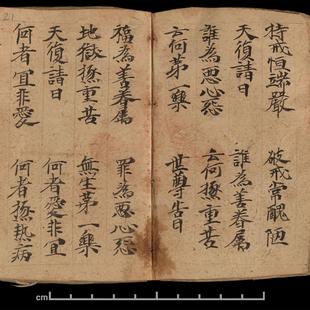 21
持戒恒端嚴 破戒常醜陋
天復請曰 誰為善眷屬
誰為惡心怨 云何極重苦
云何第一樂 世尊告曰
福為善眷屬 罪為惡心怨
地獄極重苦 無生第一樂
天復請曰 何者愛非宜
何者宜非愛 何者極熱病
cm